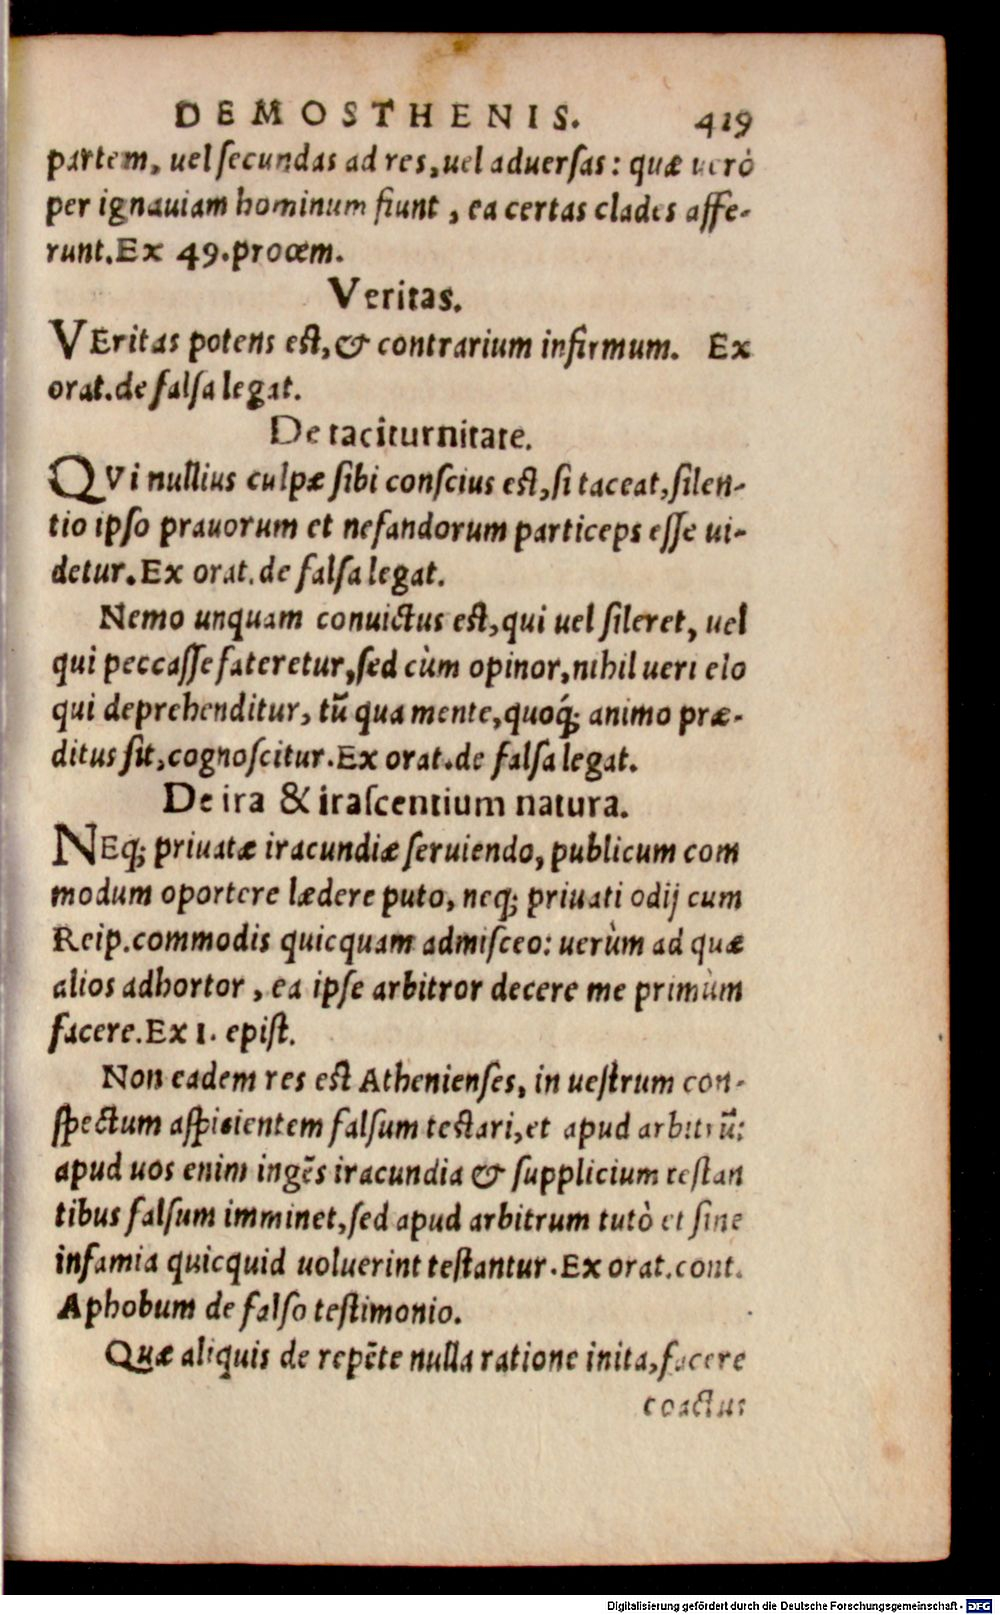 DEMOSTHENIS. 419
partem, uel secundas ad res, uel aduersas: quæ uerò
per ignauiam hominum fiunt, ea certas clades affe-
runt. Ex 49. procem.
Veritas.
VEritas potens est, & contrarium infirmum. Ex
orat. de falsa legat.
De taciturnitate.
QVi nullius culpæ sibi conscius est, si taceat, silen-
tio ipso prauorum et nefandorum particeps esse ui-
detur. Ex orat. de falsa legat.
Nemo unquam conuictus est, qui uel sileret, uel
qui peccasse fateretur, sed cùm opinor, nihil ueri elo
qui deprehenditur, tũ qua mente, quoq́; animo præ-
ditus sit, cognoscitur. Ex orat. de falsa legat.
De ira & irascentium natura.
NEq; priuatæ iracundiæ seruiendo, publicum com
modum oportere lædere puto, neq; priuati odij cum
Reip. commodis quicquam admisceo: uerùm ad quæ
alios adhortor, ea ipse arbitror decere me primùm
facere. Ex 1. epist.
Non eadem res est Athenienses, in uestrum con-
spectum aspicientem falsum testari, et apud arbitrũ:
apud uos enim ingẽs iracundia & supplicium testan
tibus falsum imminet, sed apud arbitrum tutò et sine
infamia quicquid uoluerint testantur. Ex orat. cont.
Aphobum de falso testimonio.
Quæ aliquis de repẽte nulla ratione inita, facere
coactus
Digitalisierung gefördert durch die Deutsche Forschungsgemeinschaft - DFG